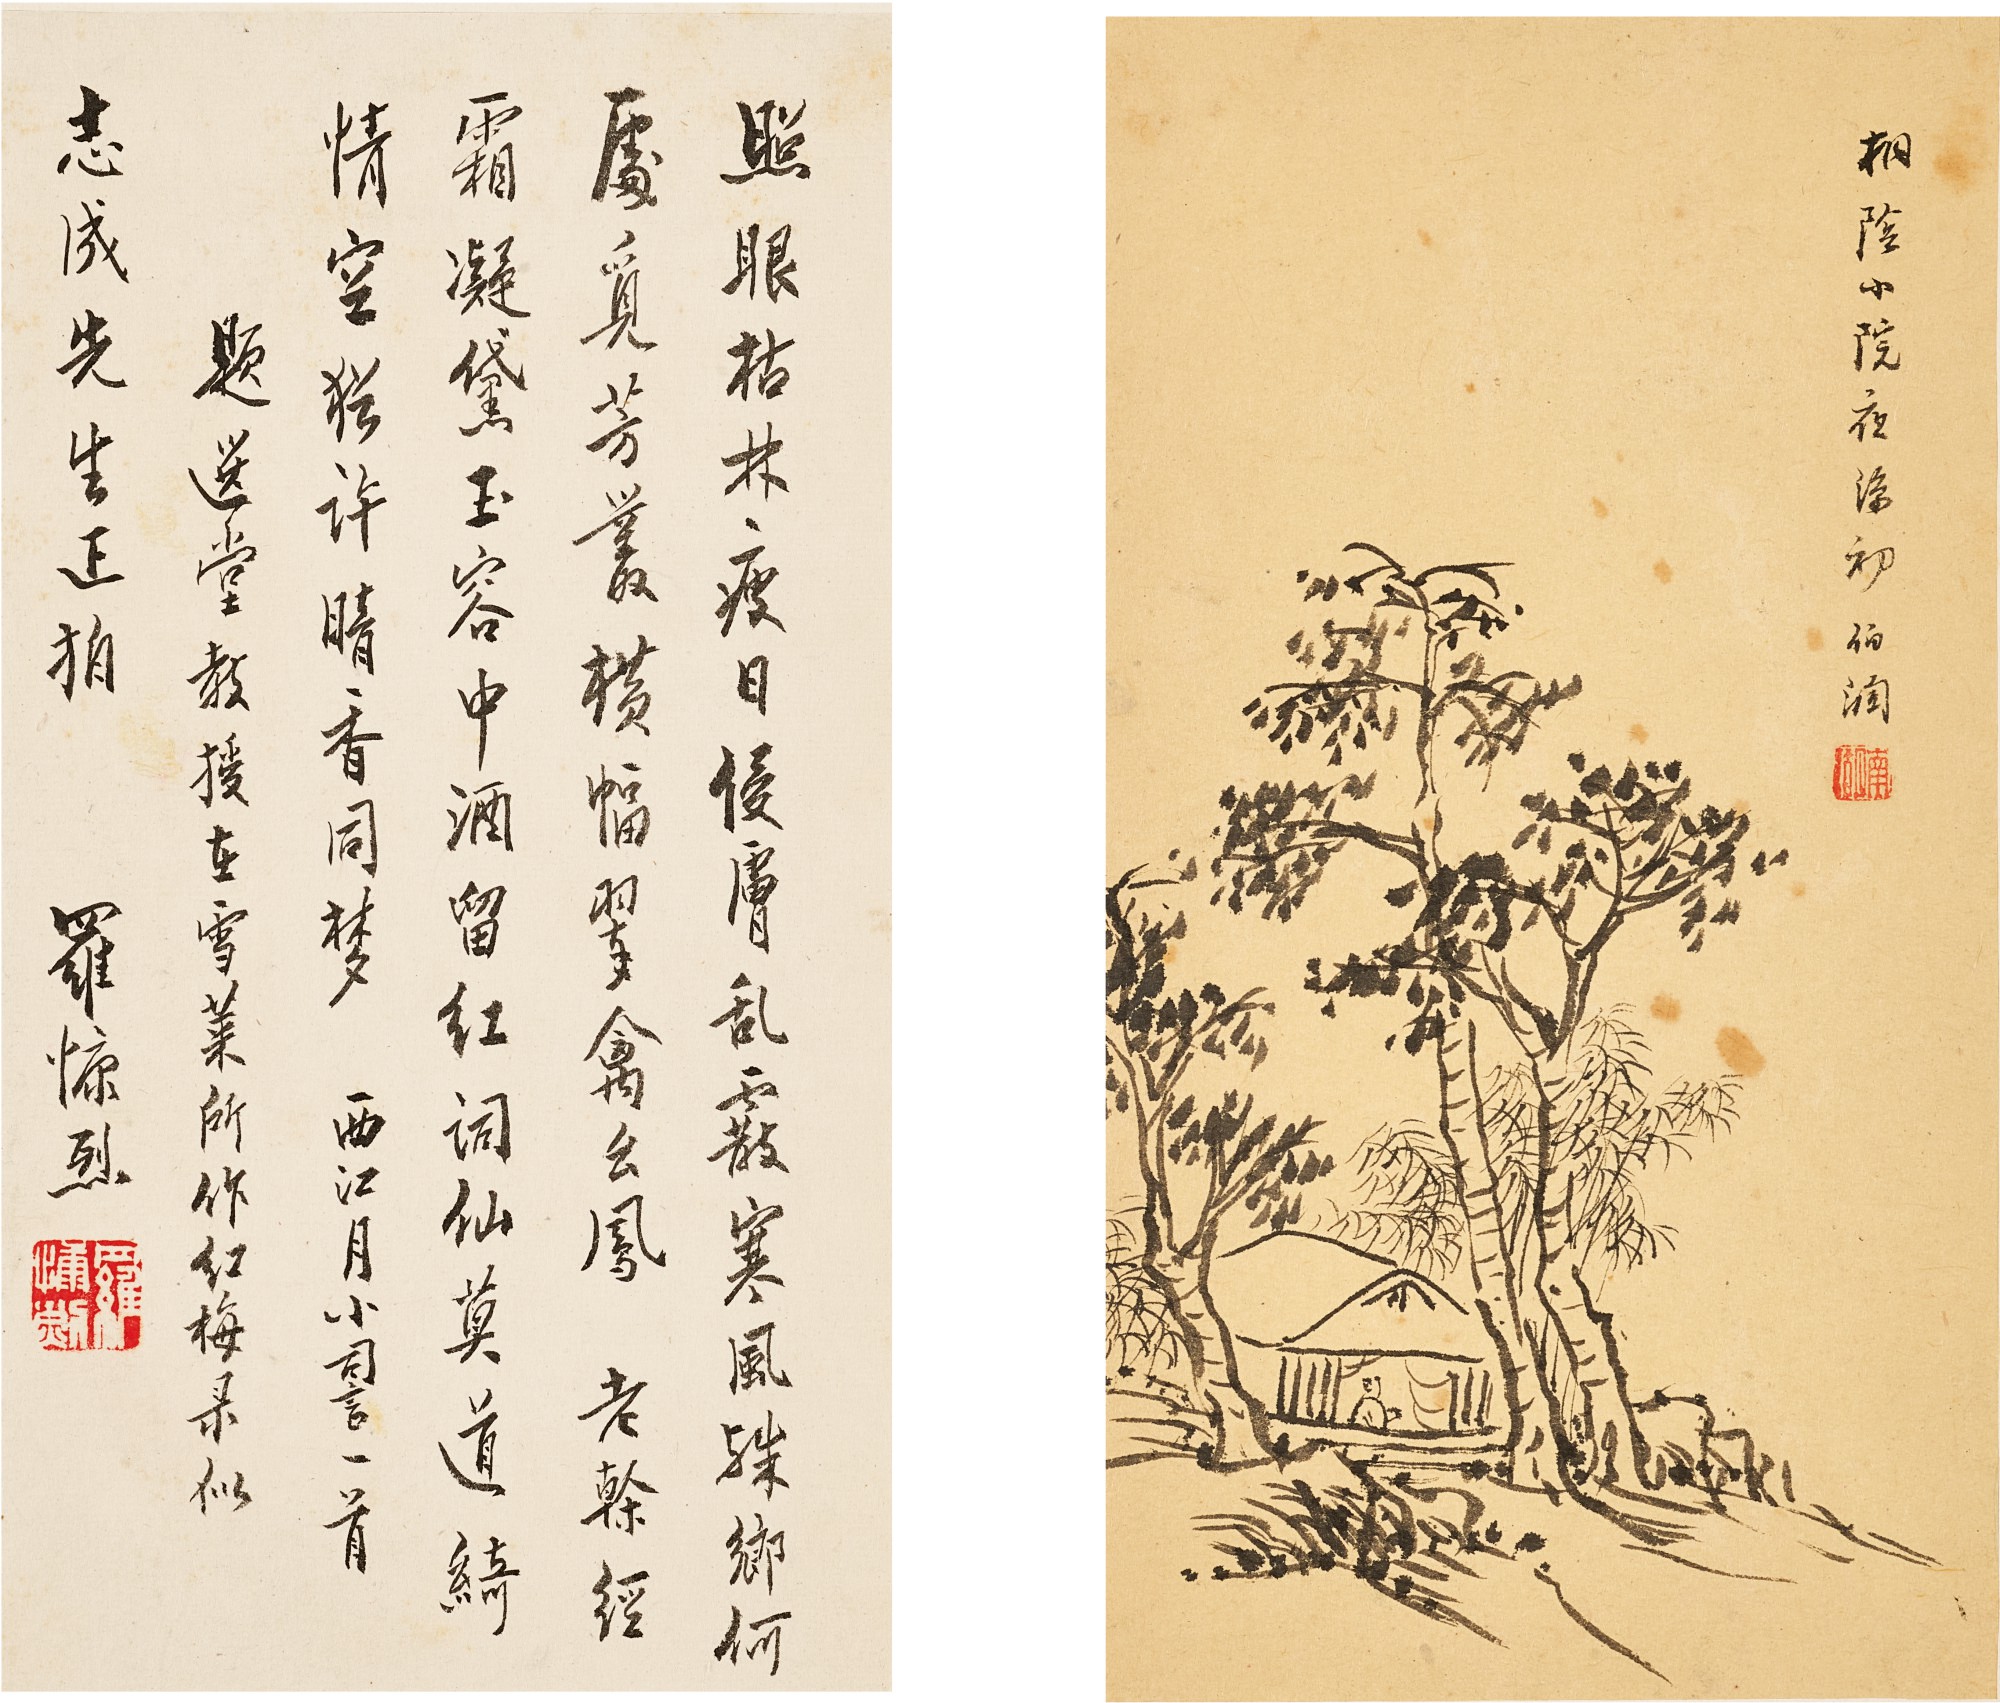 照眼枯林瘦日侵膚乱霰寒風殊鄉何
處覓芳叢橫幅翠禽幺鳳 老榦經
霜凝黛玉容中酒留紅詞仙莫道綺
情空猶許暗香同梦 西江月小詞一首
題選堂教授在雪萊所作红梅录似
志成先生正拍 羅慷烈
羅慷烈
桐陰小院夜涼初 伯潤